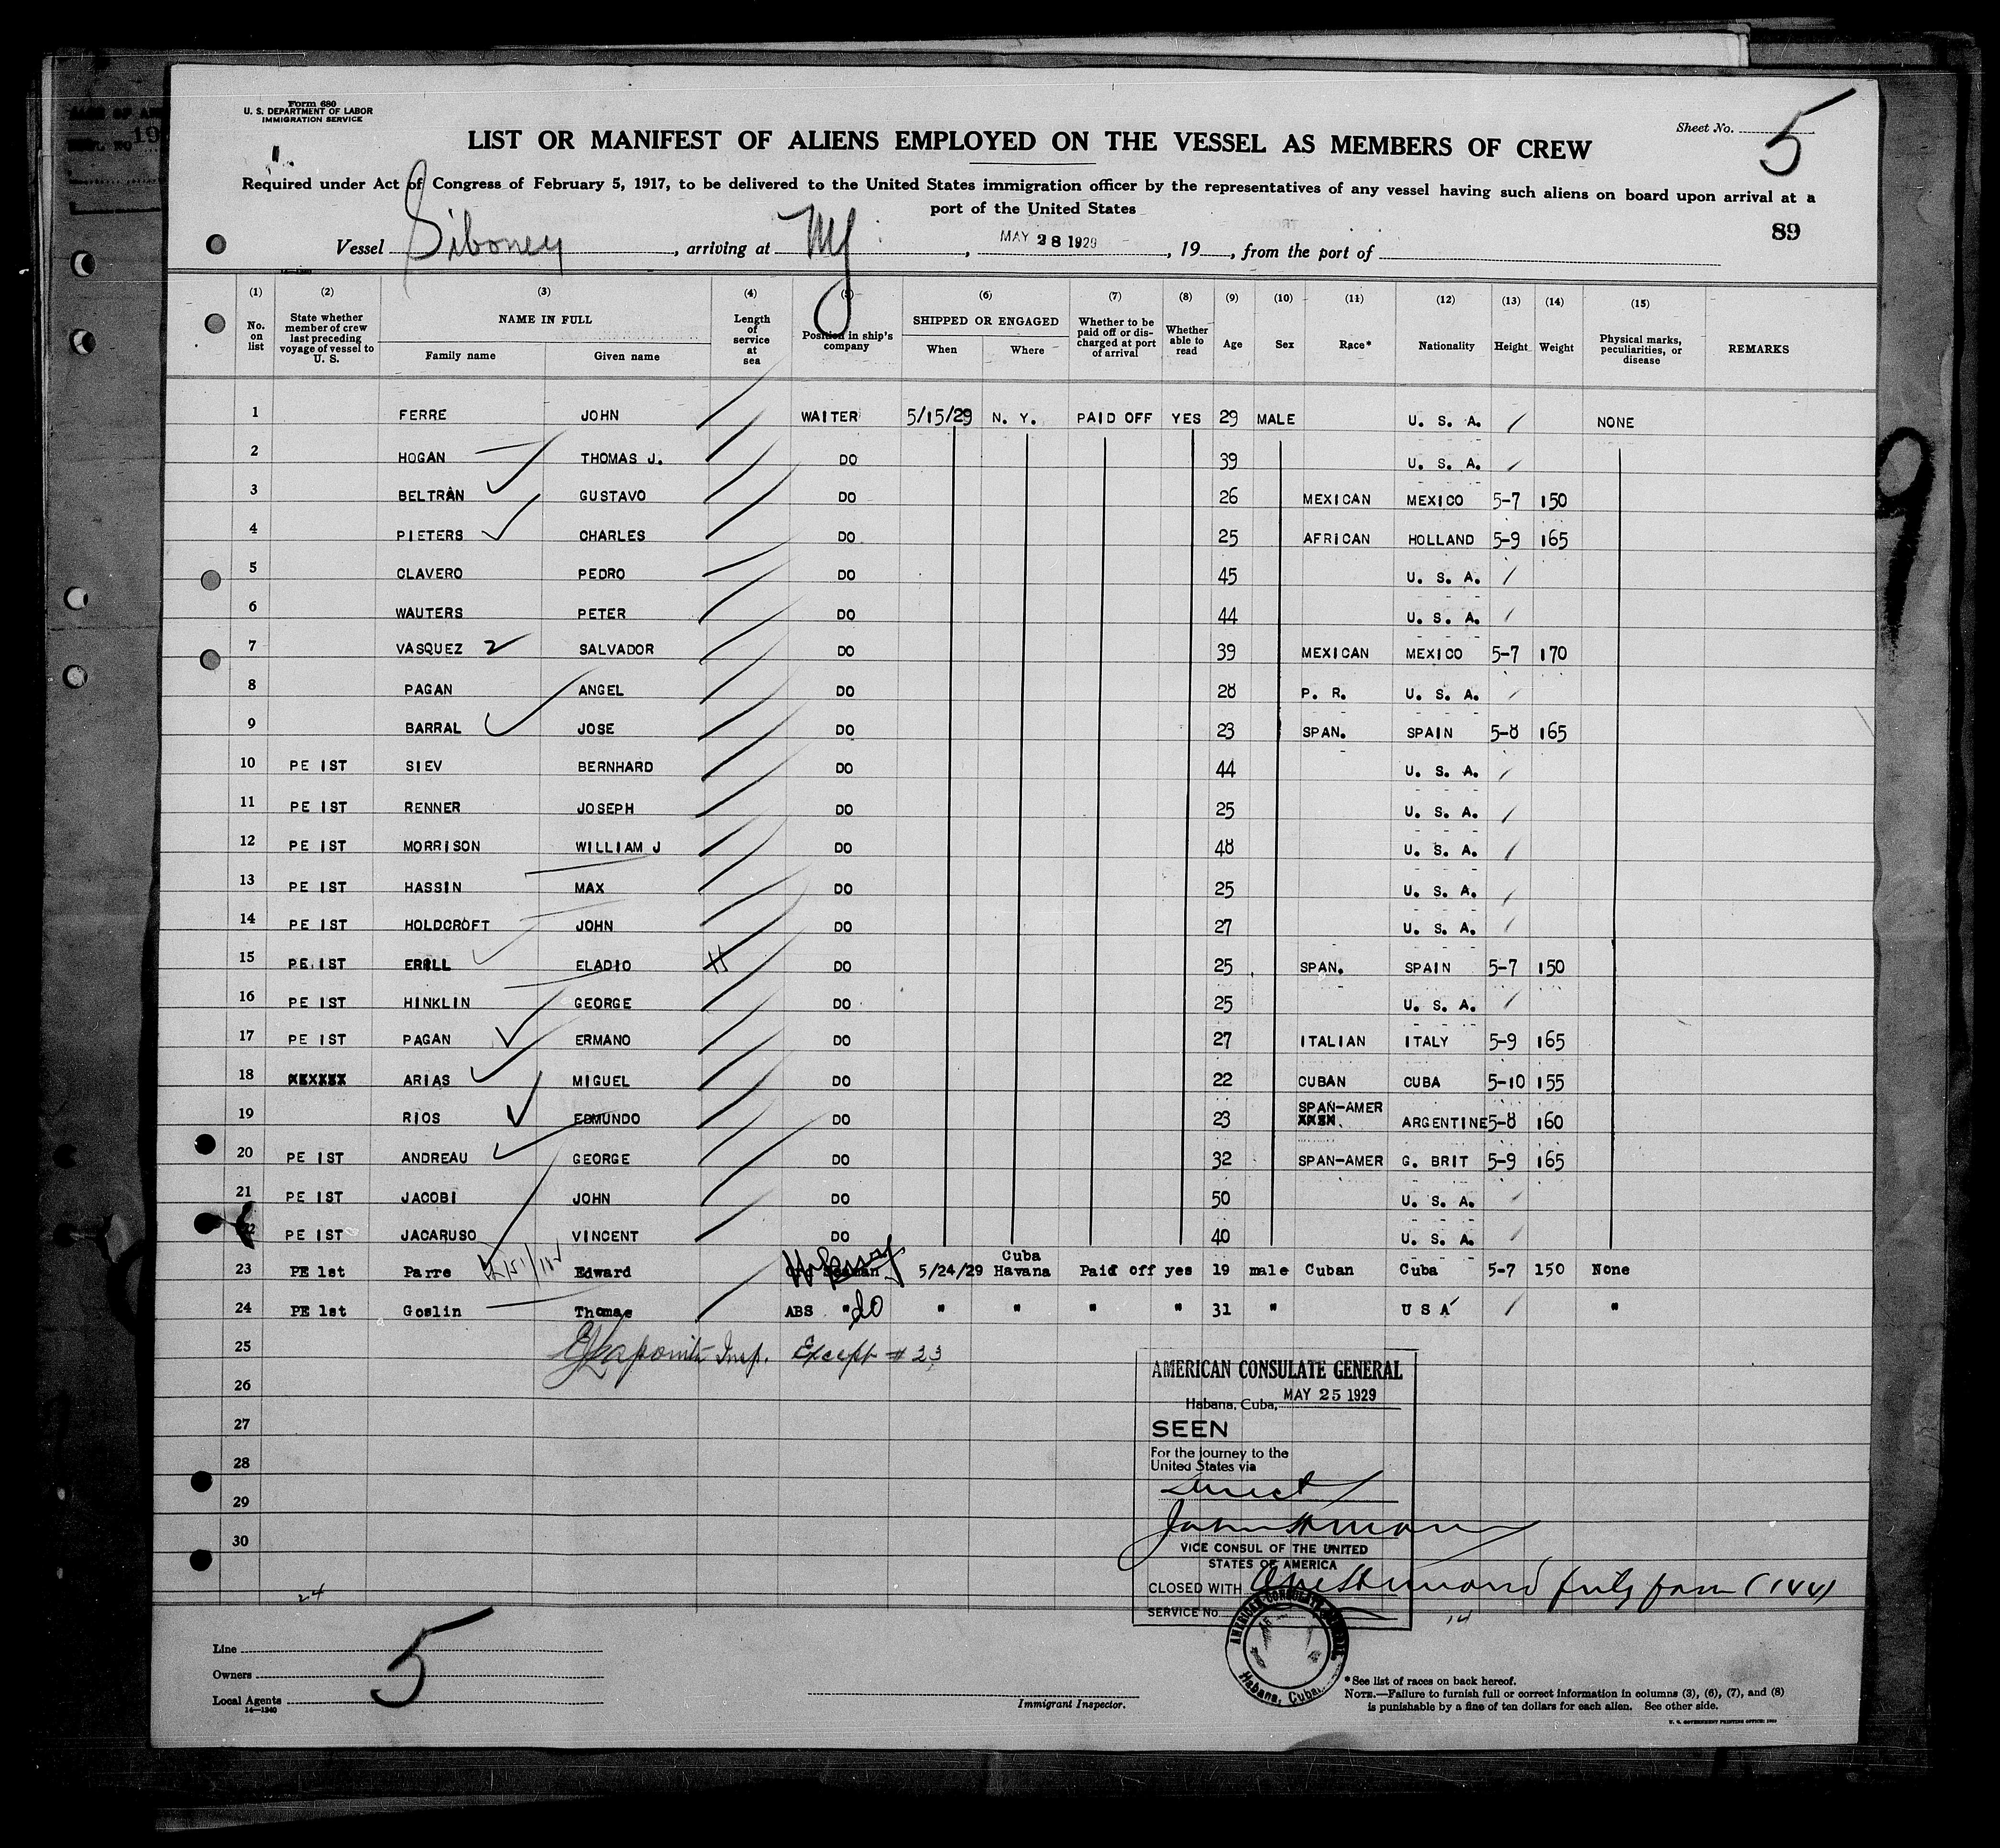 Form 680
U. S. DEPARTMENT OF LABOR
IMMIGRATION SERVICE
Sheet No. 5
LIST OR MANIFEST OF ALIENS EMPLOYED ON THE VESSEL AS MEMBERS OF CREW
Required under Act of Congress of February 5, 1917, to be delivered to the United States immigration officer by the representatives of any vessel having such aliens on board upon arrival at a
port of the United States
89
Vessel Siboney, arriving at NY, MAY 28 1929, 19, from the port of
(1) (2) (3) (4) (5) (6) (7) (8) (9) (10) (11) (12) (13) (14) (15)
No. on list State whether member of crew last preceding voyage of vessel to U. S. NAME IN FULL Family name Given name Length of service at sea Position in ship's company SHIPPED OR ENGAGED When Where Whether to be paid off or discharged at port of arrival Whether able to read Age Sex Race* Nationality Height Weight Physical marks, peculiarities, or disease REMARKS
1 FERRE JOHN WAITER 5/15/29 N. Y. PAID OFF YES 29 MALE U. S. A. NONE
2 HOGAN THOMAS J. DO 39 U. S. A.
3 BELTRAN GUSTAVO DO 26 MEXICAN MEXICO 5-7 150
4 PIETERS CHARLES DO 25 AFRICAN HOLLAND 5-9 165
5 CLAVERO PEDRO DO 45 U. S. A.
6 WAUTERS PETER DO 44 U. S. A.
7 VASQUEZ SALVADOR DO 39 MEXICAN MEXICO 5-7 170
8 PAGAN ANGEL DO 28 P. R. U. S. A.
9 BARRAL JOSE DO 23 SPAN. SPAIN 5-8 165
10 PE 1ST SIEV BERNHARD DO 44 U. S. A.
11 PE 1ST RENNER JOSEPH DO 25 U. S. A.
12 PE 1ST MORRISON WILLIAM J DO 48 U. S. A.
13 PE 1ST HASSIN MAX DO 25 U. S. A.
14 PE 1ST HOLDCROFT JOHN DO 27 U. S. A.
15 PE 1ST ERILL ELADIO DO 25 SPAN. SPAIN 5-7 150
16 PE 1ST HINKLIN GEORGE DO 25 U. S. A.
17 PE 1ST PAGAN ERMANO DO 27 ITALIAN ITALY 5-9 165
18 ARIAS MIGUEL DO 22 CUBAN CUBA 5-10 155
19 RIOS EDMUNDO DO 23 SPAN-AMER ARGENTINE 5-8 160
20 PE 1ST ANDREAU GEORGE DO 32 SPAN-AMER G. BRIT 5-9 165
21 PE 1ST JACOBI JOHN DO 50 U. S. A.
22 PE 1ST JACARUSO VINCENT DO 40 U. S. A.
23 PE 1st Parre Edward 5/24/29 Cuba Havana Paid off yes 19 male Cuban Cuba 5-7 150 None
24 PE 1st Goslin Thomas ABS " do " " " " 31 " U S A "
25 Insp. Except # 23
26
27
28
29
30
AMERICAN CONSULATE GENERAL
MAY 25 1929
Habana, Cuba,
SEEN
For the journey to the
United States via
direct
VICE CONSUL OF THE UNITED
STATES OF AMERICA
CLOSED WITH One Hundred forty four (144)
SERVICE No.
24
14
AMERICAN CONSULATE GENERAL
Habana, Cuba.
Line
Owners
Local Agents
14—1240
5
Immigrant Inspector.
*See list of races on back hereof.
NOTE.—Failure to furnish full or correct information in columns (3), (6), (7), and (8)
is punishable by a fine of ten dollars for each alien. See other side.